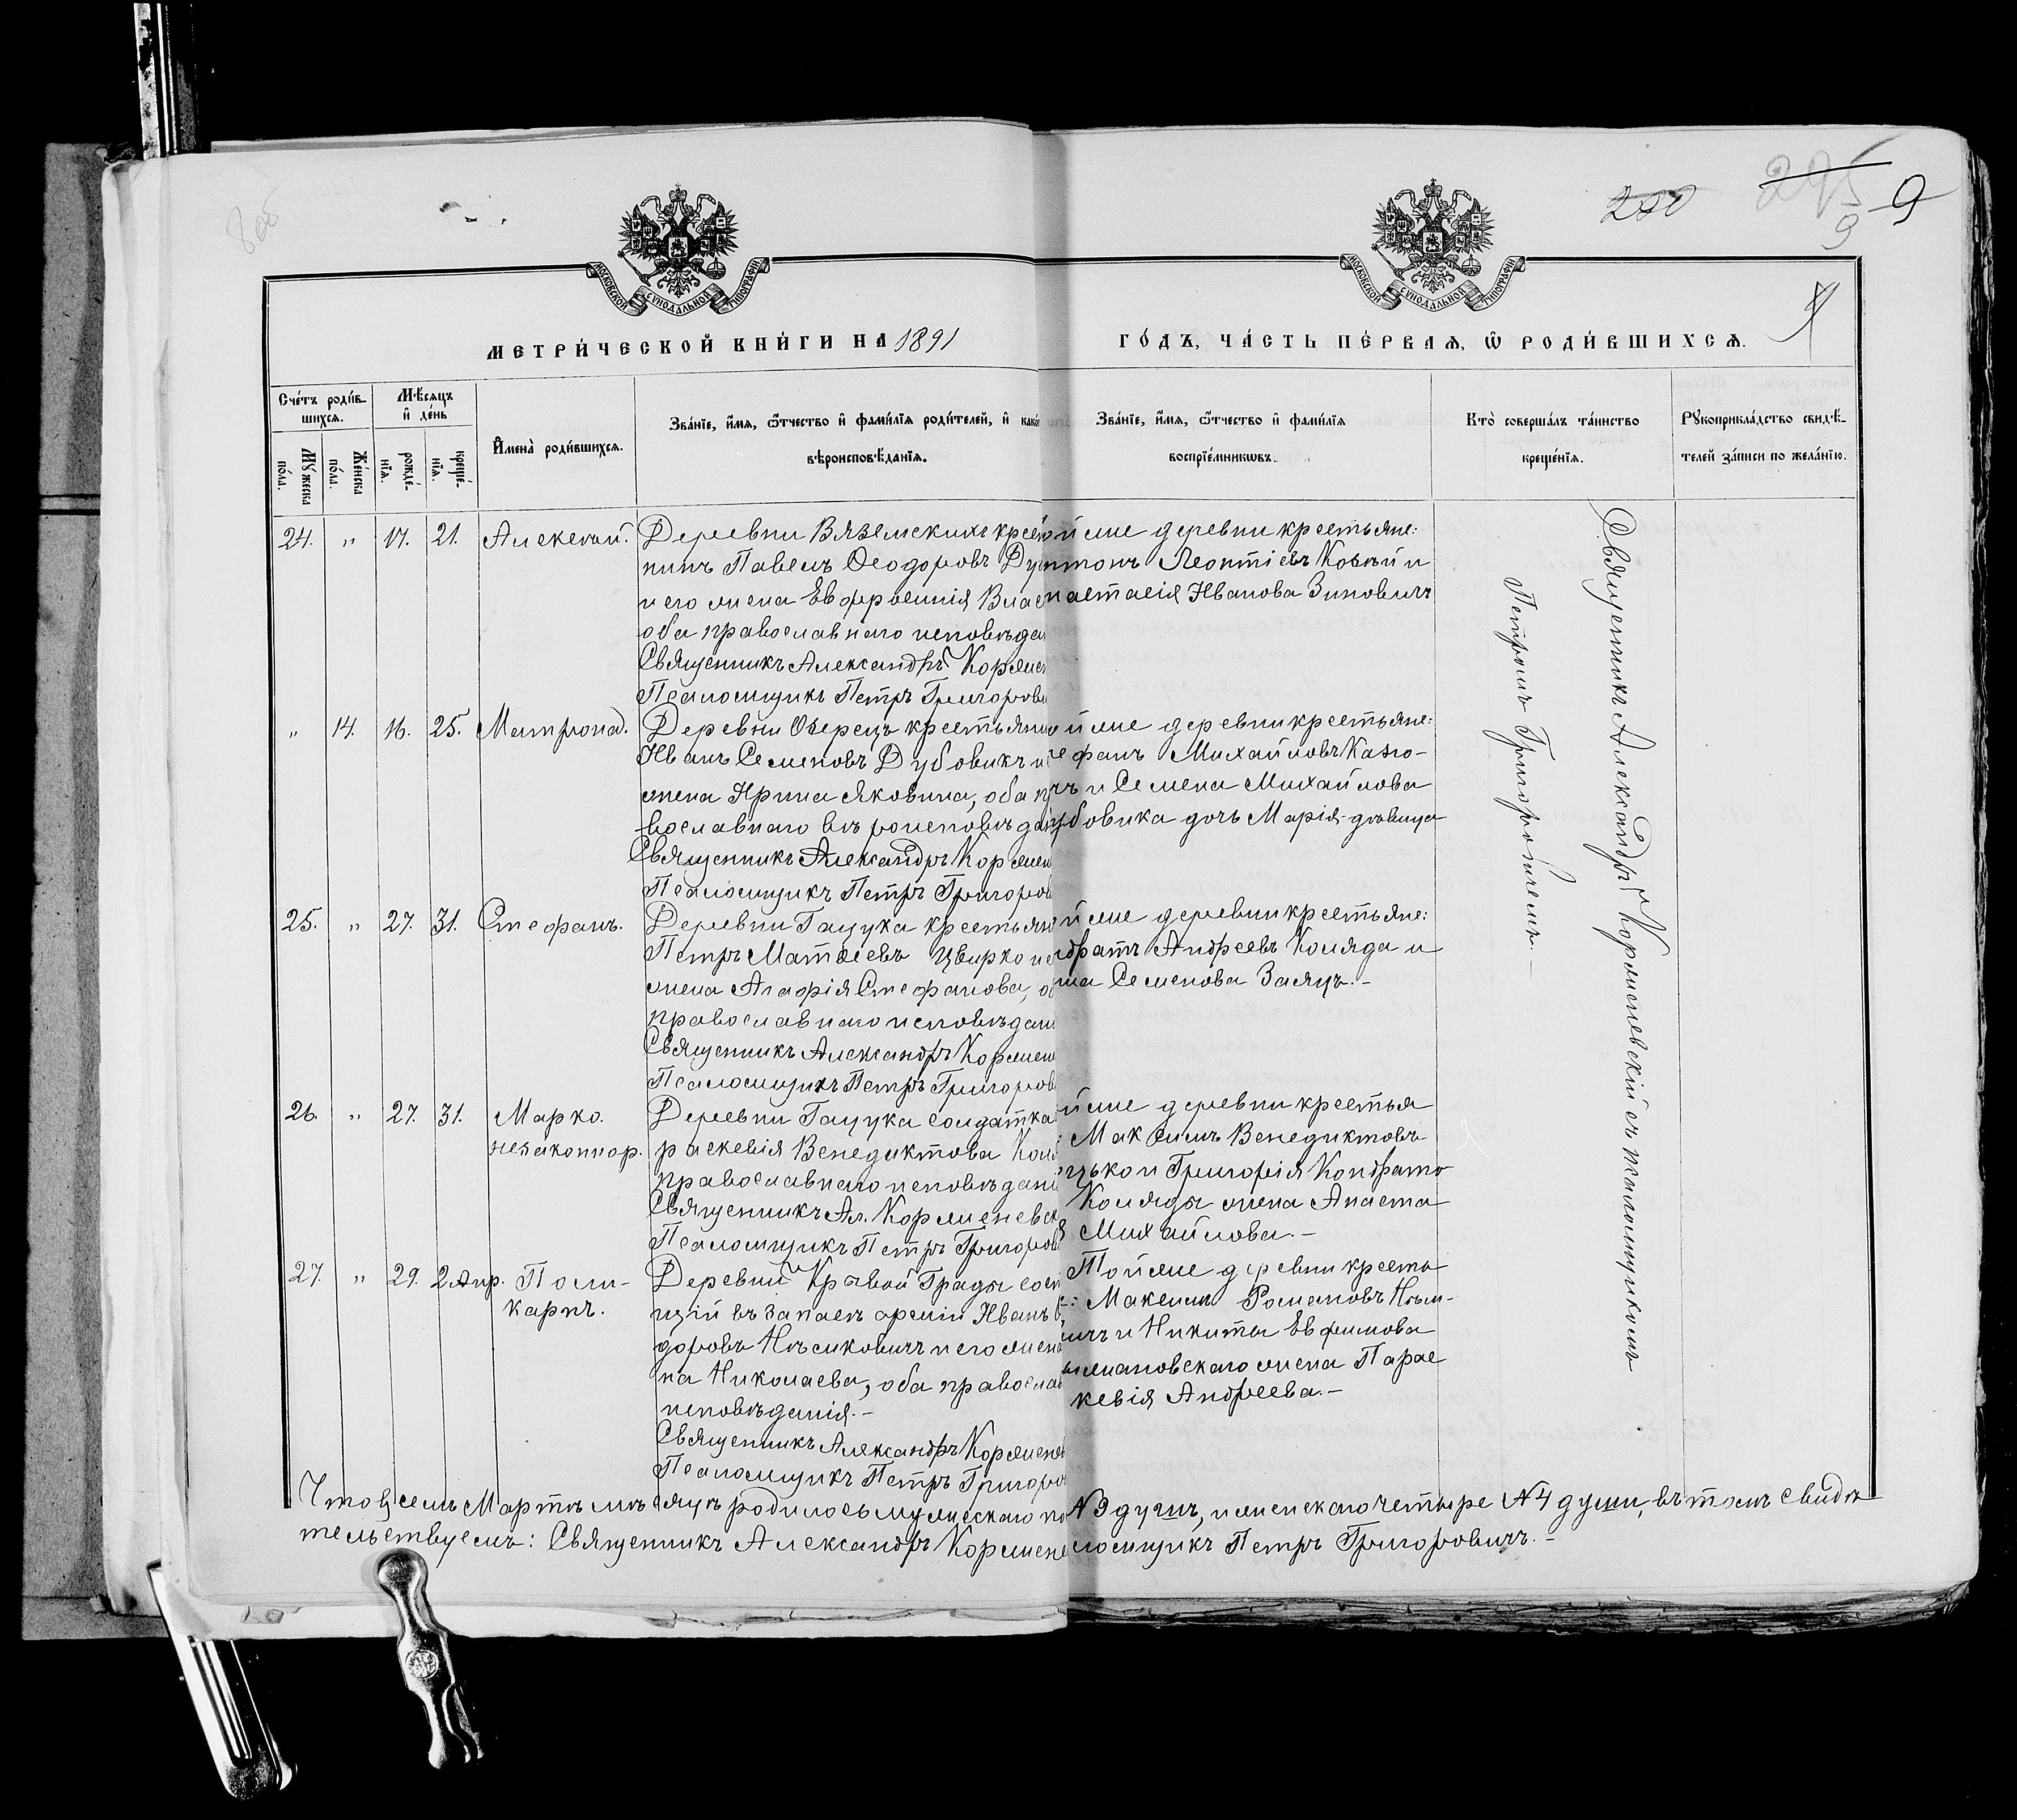 8 об
250
295
9
9
МОСКОВСКОЙ СѴНОДАЛЬНОЙ ТИПОГРАФІИ
МОСКОВСКОЙ СѴНОДАЛЬНОЙ ТИПОГРАФІИ
МЕТРИ́ЧЕСКОЙ КНИ́ГИ НА 1891
ГО́ДЪ, ЧА́СТЬ ПЕ́РВАѦ, Ѿ РОДИ́ВШИХСѦ.
Сче́тъ роди́в-
шихсѧ.
Мѣ́сѧцъ
и҆ де́нь
Мꙋ́жеска
по́ла.
Же́нска
по́ла.
рожде́-
нїѧ.
креще́-
нїѧ.
И҆мена̀ роди́вшихсѧ.
Зва́нїе, и҆́мѧ, ѻ҆́тчество и҆ фами́лїѧ роди́телей, и҆ како
вѣроисповѣ́данїѧ.
Зва́нїе, и҆́мѧ, ѻ҆́тчество и҆ фами́лїѧ
воспрїе́мникѡвъ.
Кто̀ соверша́лъ та́инство
креще́нїѧ.
Рꙋкоприкла́дство свидѣ́-
телей за́писи по жела́нїю.
24. " 17. 21. Алексѣй.
Деревни Вяземскихъ крест
нинъ Павелъ Ѳеодоровъ Ду
и его жена Евфросинія Влас
оба православнаго исповѣда
Священникъ Александръ Коржен
Псаломщикъ Петръ Григорови
ой же деревни крестьяне:
нтонъ Леонтіевъ Ковзей и
настасія Иванова Зиновичъ
" 14. 16. 25. Матрона.
Деревни Озерецъ крестьянин
Иванъ Семеновъ Дубовикъ и е
жена Ирина Яковлева, оба пр
вославнаго вѣроисповѣдан
Священникъ Александръ Коржен
Псаломщикъ Петръ Григоров
ой же деревни крестьяне:
ефанъ Михайловъ Казю-
чъ и Семена Михайлова
убовика дочь Марія-дѣвица
25. " 27. 31. Стефанъ.
Деревни Гацука крестьяни
Петръ Матѳіевъ Цвирко и е
жена Агафія Стефанова, об
православнаго исповѣдані
Священникъ Александръ Коржен
Псаломщикъ Петръ Григоров
ой же деревни крестьяне:
ндратъ Андреевъ Коляда и
на Семенова Заяцъ.-
26. " 27. 31. Марко.
незаконнор.
Деревни Гацука солдатка
раскевія Венедиктова Кол
православнаго исповѣдані
Священникъ Ал. Корженевск
Псаломщикъ Петръ Григоров
й же деревни крестья
Максимъ Венедиктовъ
цько и Григорія Кондрато
Коляды жена Анаста
я Михайлова.-
27. " 29. 2 Апр. Поли-
карпъ.
Деревни Кривой Грады сост
щій въ запасѣ арміи Иванъ
доровъ Нѣмковичъ и его жена
на Николаева, оба православ
исповѣданія.-
Священникъ Александръ Коржене
Псаломщикъ Петръ Григоров
Той же деревни кресть
е: Максимъ Романовъ Нѣм-
ичъ и Никиты Евфимова
имановскаго жена Парас
кевія Андреева.-
Священникъ Александръ Корженевскій съ псаломщикомъ
Петромъ Григоровичемъ.-
Что въ семъ Мартѣ мѣсяцѣ родилось мужескаго по
№ 9 душъ, и женскаго четыре № 4 души, въ томъ свидѣ
тельствуемъ: Священникъ Александръ Коржене
ломщикъ Петръ Григоровичъ.-